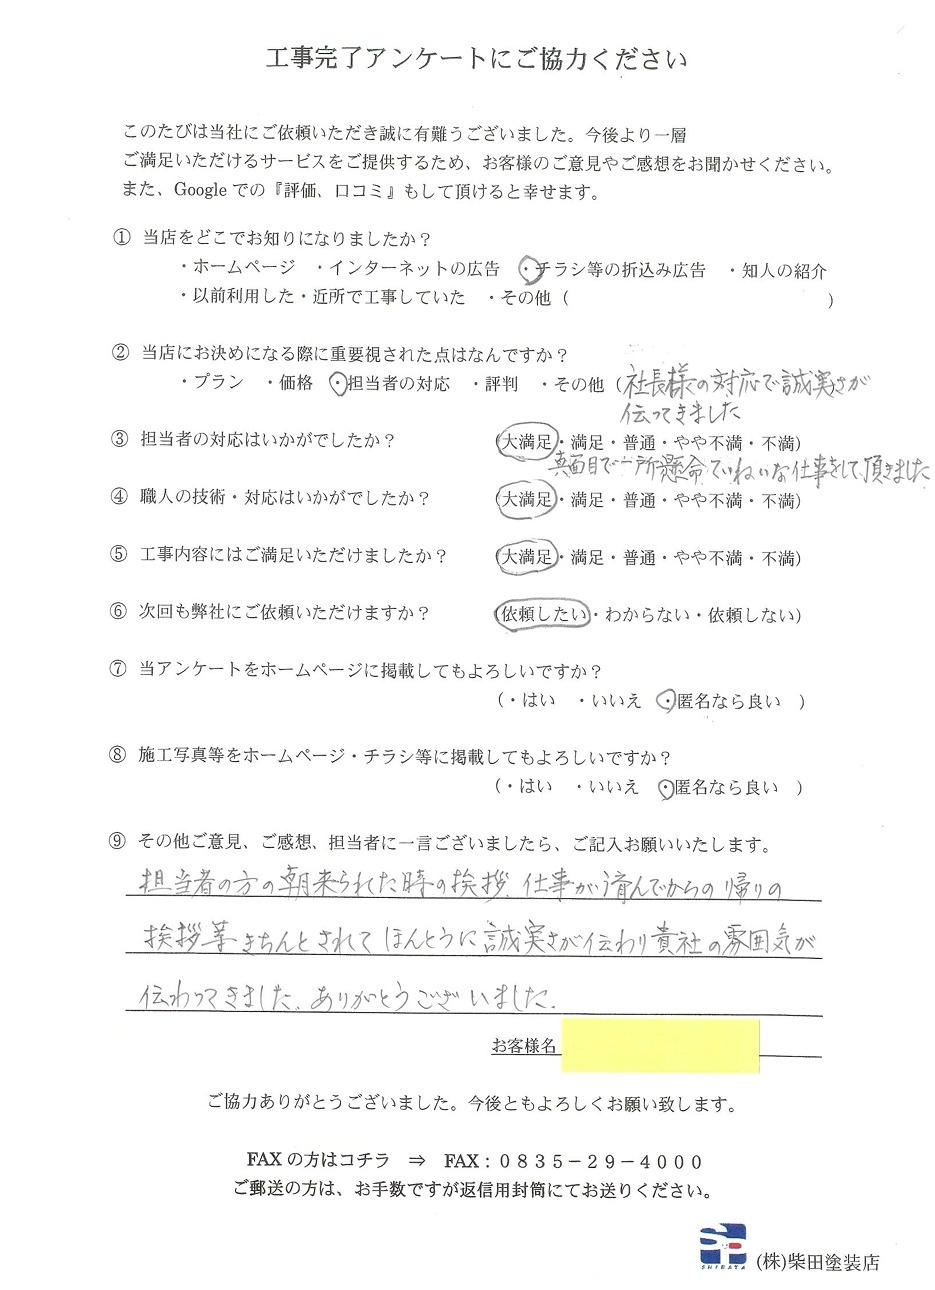 工事完了アンケートにご協力ください
このたびは当社にご依頼いただき誠に有難うございました。今後より一層
ご満足いただけるサービスをご提供するため、お客様のご意見やご感想をお聞かせください。
また、Googleでの『評価、口コミ』もして頂けると幸せます。
① 当店をどこでお知りになりましたか？
・ホームページ ・インターネットの広告 ・チラシ等の折込み広告 ・知人の紹介
・以前利用した・近所で工事していた ・その他（ ）
② 当店にお決めになる際に重要視された点はなんですか？
・プラン ・価格 ・担当者の対応 ・評判 ・その他（社長様の対応で誠実さが
伝ってきました
③ 担当者の対応はいかがでしたか？ (大満足・満足・普通・やや不満・不満)
真面目で一所懸命ていねいな仕事をして頂きました
④ 職人の技術・対応はいかがでしたか？ (大満足・満足・普通・やや不満・不満)
⑤ 工事内容にはご満足いただけましたか？ (大満足・満足・普通・やや不満・不満)
⑥ 次回も弊社にご依頼いただけますか？ (依頼したい・わからない・依頼しない)
⑦ 当アンケートをホームページに掲載してもよろしいですか？
(・はい ・いいえ ・匿名なら良い )
⑧ 施工写真等をホームページ・チラシ等に掲載してもよろしいですか？
(・はい ・いいえ ・匿名なら良い )
⑨ その他ご意見、ご感想、担当者に一言ございましたら、ご記入お願いいたします。
担当者の方の朝来られた時の挨拶、仕事が済んでからの帰りの
挨拶等きちんとされてほんとうに誠実さが伝わり貴社の雰囲気が
伝わってきました。ありがとうございました。
お客様名
ご協力ありがとうございました。今後ともよろしくお願い致します。
FAXの方はコチラ ⇒ FAX：０８３５－２９－４０００
ご郵送の方は、お手数ですが返信用封筒にてお送りください。
SHIBATA
(株)柴田塗装店